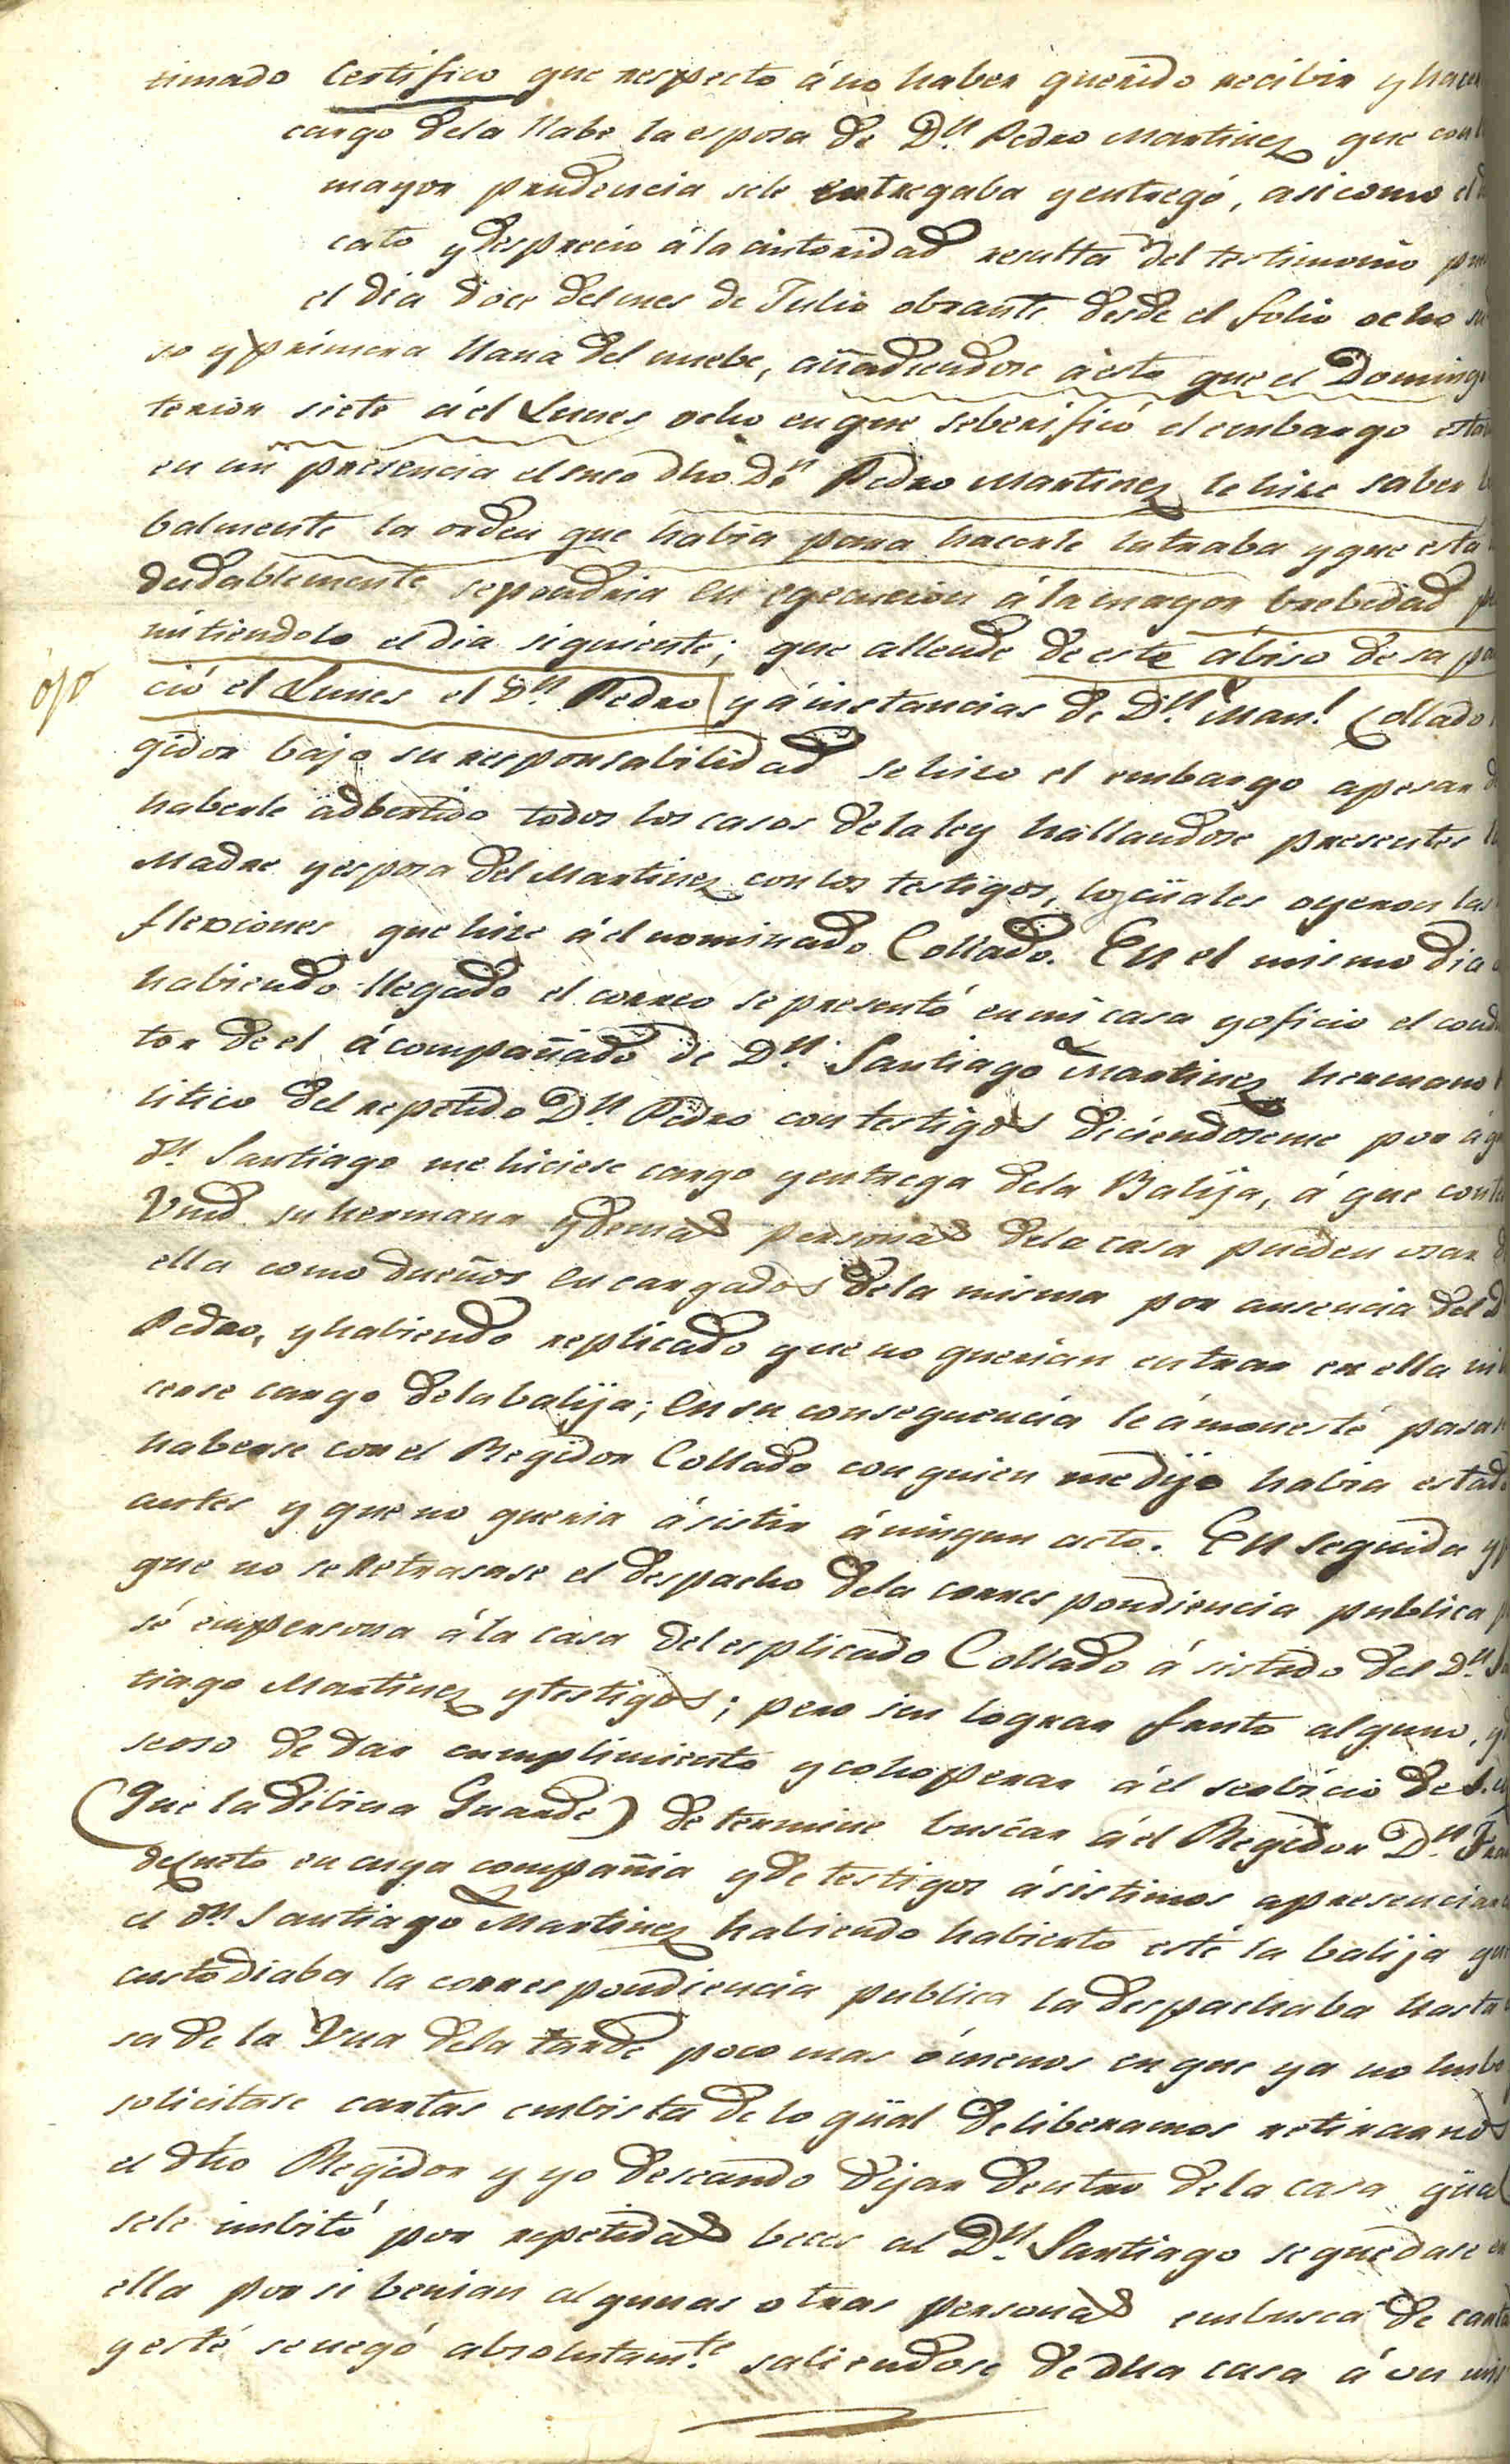 timado Certifico que respecto á no haber querido recibir y hacer
cargo dela llabe la esposa de Dn. Pedro Martinez que con
mayor prudencia sele entregaba y entregó, asi como el
cato y desprecio á la autoridad resulta del testimonio
el dia doce del mes de Julio obrante desde el folio ocho
so y primera llana del nuebe, añadiendose á esto que el Domingo
terior siete á el Lunes ocho en que se berifició el embargo
en mi presencia el suso dho Dn. Pedro Martinez le hice saber
balmente la orden que habia para hacerle la traba y que esta
dudablemente se pondria en egecucion á la mayor brebedad
mitiendolo el dia siguiente; que allende de este abiso desapa
ojo
ció el Lunes el Dn. Pedro y á instancias de Dn. Manl. Collado
gidor bajo su responsabilidad se hizo el embargo apesar
haberle adbertido todos los casos dela ley hallandose presentes
Madre y esposa del Martinez con los testigos, los cüales oyeron las
flexiones que hice á el nominado Collado. En el mismo dia
habiendo llegado el correo se presentó en mi casa y oficio el cond
tor de el ácompañado de Dn. Santiago Martinez hermano
litico del repetido Dn. Pedro con testigos diciendoseme por
dn. Santiago me hiciese cargo y entrega dela Balija, á que
Vmd su hermana y demas personas dela casa pueden usar
ella como dueños encargados dela misma por ausencia del
Pedro, y habiendo replicado que no querian entrar en ella
cerse cargo dela balija; en su consequencia le ámonesté pasar
haberse con el Regidor Collado con quien me dijo habia estad
antes y que no queria ásistir á ningun acto. En seguida y
que no se retrasase el despacho dela correspondiencia publica
sé en persona á la casa del esplicado Collado á sistido del Dn.
tiago Martinez y testigos; pero sin lograr fruto alguno,
seoso de dar cumplimiento y cohoperar á el serbicio de S.
(que la Dibina Guarde) determine buscar á el Regidor Dn.
deCueto en cuya compañia y de testigos ásistimos apresenciar
el dn Santiago Martinez habiendo habierto esté la balija
custodiaba la correspondiencia publica la despachaba hasta
sa de la Vna dela tarde poco mas ó menos en que ya no hubo
solicitase cartas embista de lo qüal deliberamos retirarnos
el dho Regidor y yo deseando dijar dentro dela casa
sele imbitó por repetidas beces al Dn. Santiago se quedase
ella por si benian algunas otras personas embusca de
y esté se negó absolutamte. saliendose de dha casa á un